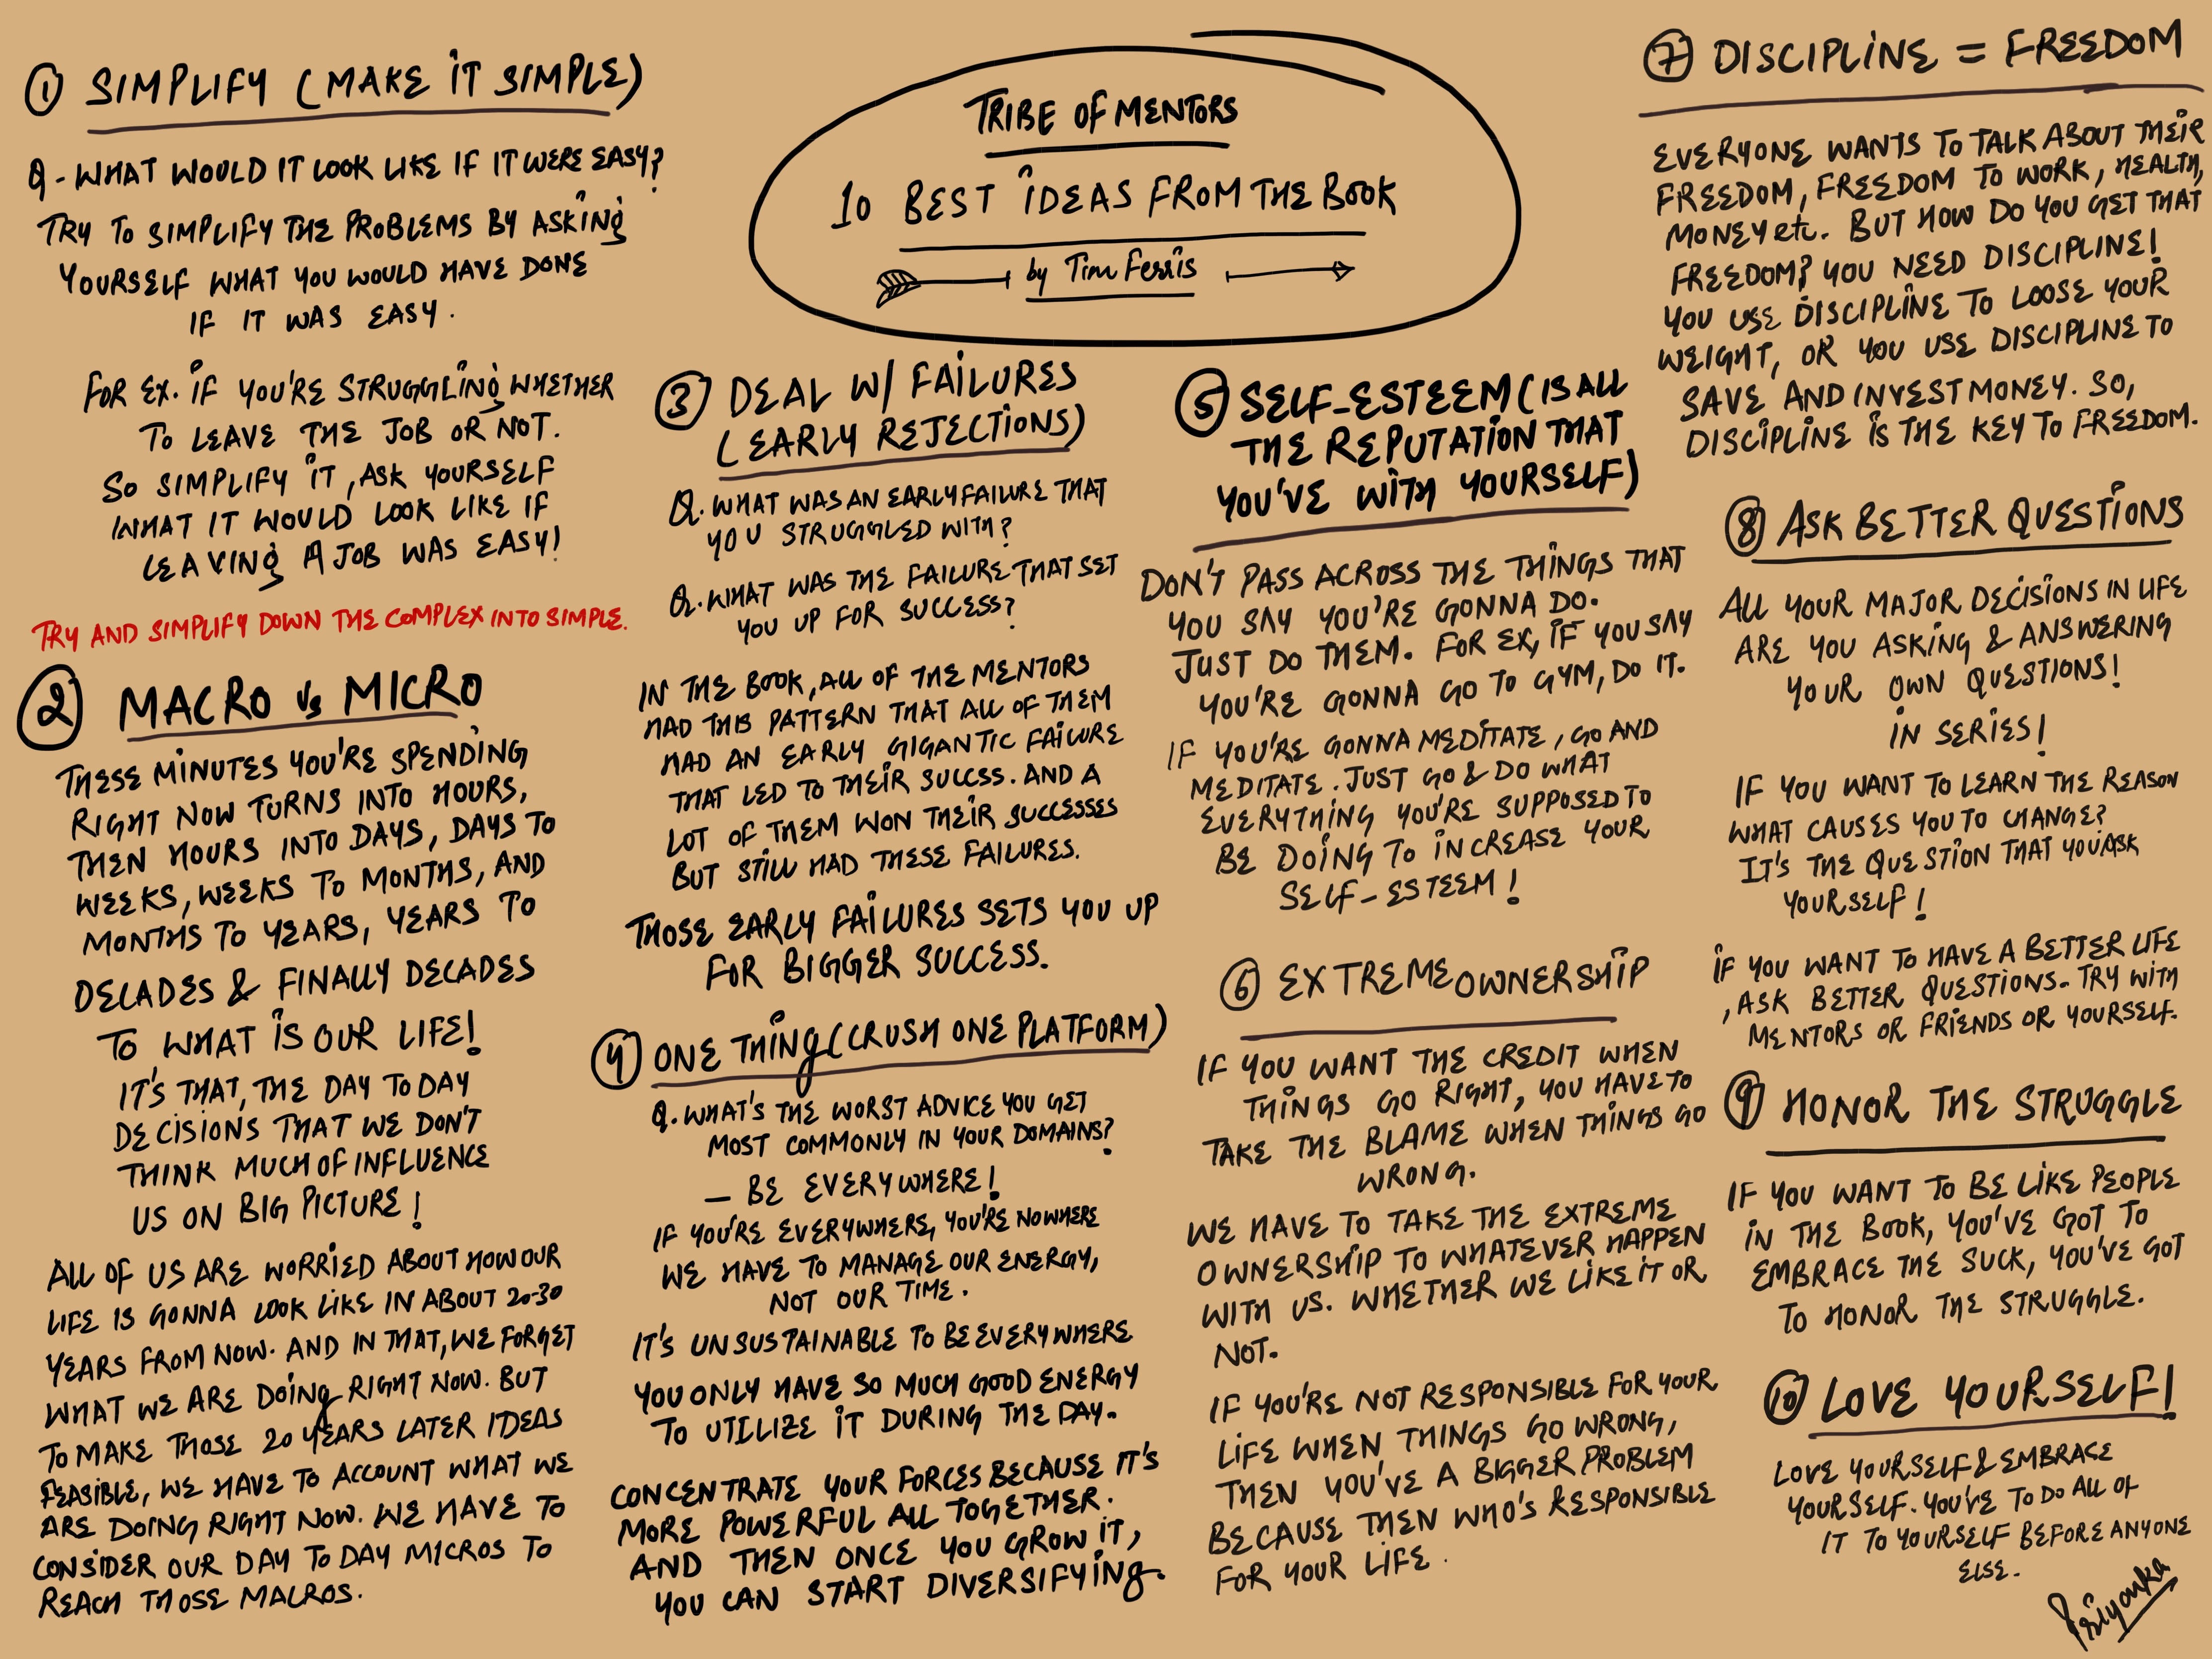 TRIBE OF MENTORS
10 BEST IDEAS FROM THE BOOK
by Tim Ferris
① SIMPLIFY (MAKE IT SIMPLE)
Q - WHAT WOULD IT LOOK LIKE IF IT WERE EASY?
TRY TO SIMPLIFY THE PROBLEMS BY ASKING
YOURSELF WHAT YOU WOULD HAVE DONE
IF IT WAS EASY.
FOR EX. IF YOU'RE STRUGGLING WHETHER
TO LEAVE THE JOB OR NOT.
SO SIMPLIFY IT, ASK YOURSELF
WHAT IT WOULD LOOK LIKE IF
LEAVING A JOB WAS EASY!
TRY AND SIMPLIFY DOWN THE COMPLEX INTO SIMPLE.
② MACRO Vs MICRO
THESE MINUTES YOU'RE SPENDING
RIGHT NOW TURNS INTO HOURS,
THEN HOURS INTO DAYS, DAYS TO
WEEKS, WEEKS TO MONTHS, AND
MONTHS TO YEARS, YEARS TO
DECADES & FINALLY DECADES
TO WHAT IS OUR LIFE!
IT'S THAT, THE DAY TO DAY
DECISIONS THAT WE DON'T
THINK MUCH OF INFLUENCE
US ON BIG PICTURE!
ALL OF US ARE WORRIED ABOUT HOW OUR
LIFE IS GONNA LOOK LIKE IN ABOUT 20-30
YEARS FROM NOW. AND IN THAT, WE FORGET
WHAT WE ARE DOING RIGHT NOW. BUT
TO MAKE THOSE 20 YEARS LATER IDEAS
FEASIBLE, WE HAVE TO ACCOUNT WHAT WE
ARE DOING RIGHT NOW. WE HAVE TO
CONSIDER OUR DAY TO DAY MICROS TO
REACH THOSE MACROS.
③ DEAL W/ FAILURES
(EARLY REJECTIONS)
Q. WHAT WAS AN EARLY FAILURE THAT
YOU STRUGGLED WITH?
Q. WHAT WAS THE FAILURE THAT SET
YOU UP FOR SUCCESS?
IN THE BOOK, ALL OF THE MENTORS
HAD THIS PATTERN THAT ALL OF THEM
HAD AN EARLY GIGANTIC FAILURE
THAT LED TO THEIR SUCCSS. AND A
LOT OF THEM WON THEIR SUCCESSES
BUT STILL HAD THESE FAILURES.
THOSE EARLY FAILURES SETS YOU UP
FOR BIGGER SUCCESS.
④ ONE THING (CRUSH ONE PLATFORM)
Q. WHAT'S THE WORST ADVICE YOU GET
MOST COMMONLY IN YOUR DOMAINS?
— BE EVERYWHERE!
IF YOU'RE EVERYWHERE, YOU'RE NOWHERE
WE HAVE TO MANAGE OUR ENERGY,
NOT OUR TIME.
IT'S UNSUSTAINABLE TO BE EVERYWHERE
YOU ONLY HAVE SO MUCH GOOD ENERGY
TO UTILIZE IT DURING THE DAY.
CONCENTRATE YOUR FORCES BECAUSE IT'S
MORE POWERFUL ALL TOGETHER.
AND THEN ONCE YOU GROW IT,
YOU CAN START DIVERSIFYING.
⑤ SELF-ESTEEM (IS ALL
THE REPUTATION THAT
YOU'VE WITH YOURSELF)
DON'T PASS ACROSS THE THINGS THAT
YOU SAY YOU'RE GONNA DO.
JUST DO THEM. FOR EX, IF YOU SAY
YOU'RE GONNA GO TO GYM, DO IT.
IF YOU'RE GONNA MEDITATE, GO AND
MEDITATE. JUST GO & DO WHAT
EVERYTHING YOU'RE SUPPOSED TO
BE DOING TO INCREASE YOUR
SELF-ESTEEM!
⑥ EXTREME OWNERSHIP
IF YOU WANT THE CREDIT WHEN
THINGS GO RIGHT, YOU HAVE TO
TAKE THE BLAME WHEN THINGS GO
WRONG.
WE HAVE TO TAKE THE EXTREME
OWNERSHIP TO WHATEVER HAPPEN
WITH US. WHETHER WE LIKE IT OR
NOT.
IF YOU'RE NOT RESPONSIBLE FOR YOUR
LIFE WHEN THINGS GO WRONG,
THEN YOU'VE A BIGGER PROBLEM
BECAUSE THEN WHO'S RESPONSIBLE
FOR YOUR LIFE.
⑦ DISCIPLINE = FREEDOM
EVERYONE WANTS TO TALK ABOUT THEIR
FREEDOM, FREEDOM TO WORK, HEALTH,
MONEY etc. BUT HOW DO YOU GET THAT
FREEDOM? YOU NEED DISCIPLINE!
YOU USE DISCIPLINE TO LOOSE YOUR
WEIGHT, OR YOU USE DISCIPLINE TO
SAVE AND INVEST MONEY. SO,
DISCIPLINE IS THE KEY TO FREEDOM.
⑧ ASK BETTER QUESTIONS
ALL YOUR MAJOR DECISIONS IN LIFE
ARE YOU ASKING & ANSWERING
YOUR OWN QUESTIONS!
IN SERIES!
IF YOU WANT TO LEARN THE REASON
WHAT CAUSES YOU TO CHANGE?
IT'S THE QUESTION THAT YOU ASK
YOURSELF!
IF YOU WANT TO HAVE A BETTER LIFE
, ASK BETTER QUESTIONS. TRY WITH
MENTORS OR FRIENDS OR YOURSELF.
⑨ HONOR THE STRUGGLE
IF YOU WANT TO BE LIKE PEOPLE
IN THE BOOK, YOU'VE GOT TO
EMBRACE THE SUCK, YOU'VE GOT
TO HONOR THE STRUGGLE.
⑩ LOVE YOURSELF!
LOVE YOURSELF & EMBRACE
YOURSELF. YOU'VE TO DO ALL OF
IT TO YOURSELF BEFORE ANYONE
ELSE.
Priyanka